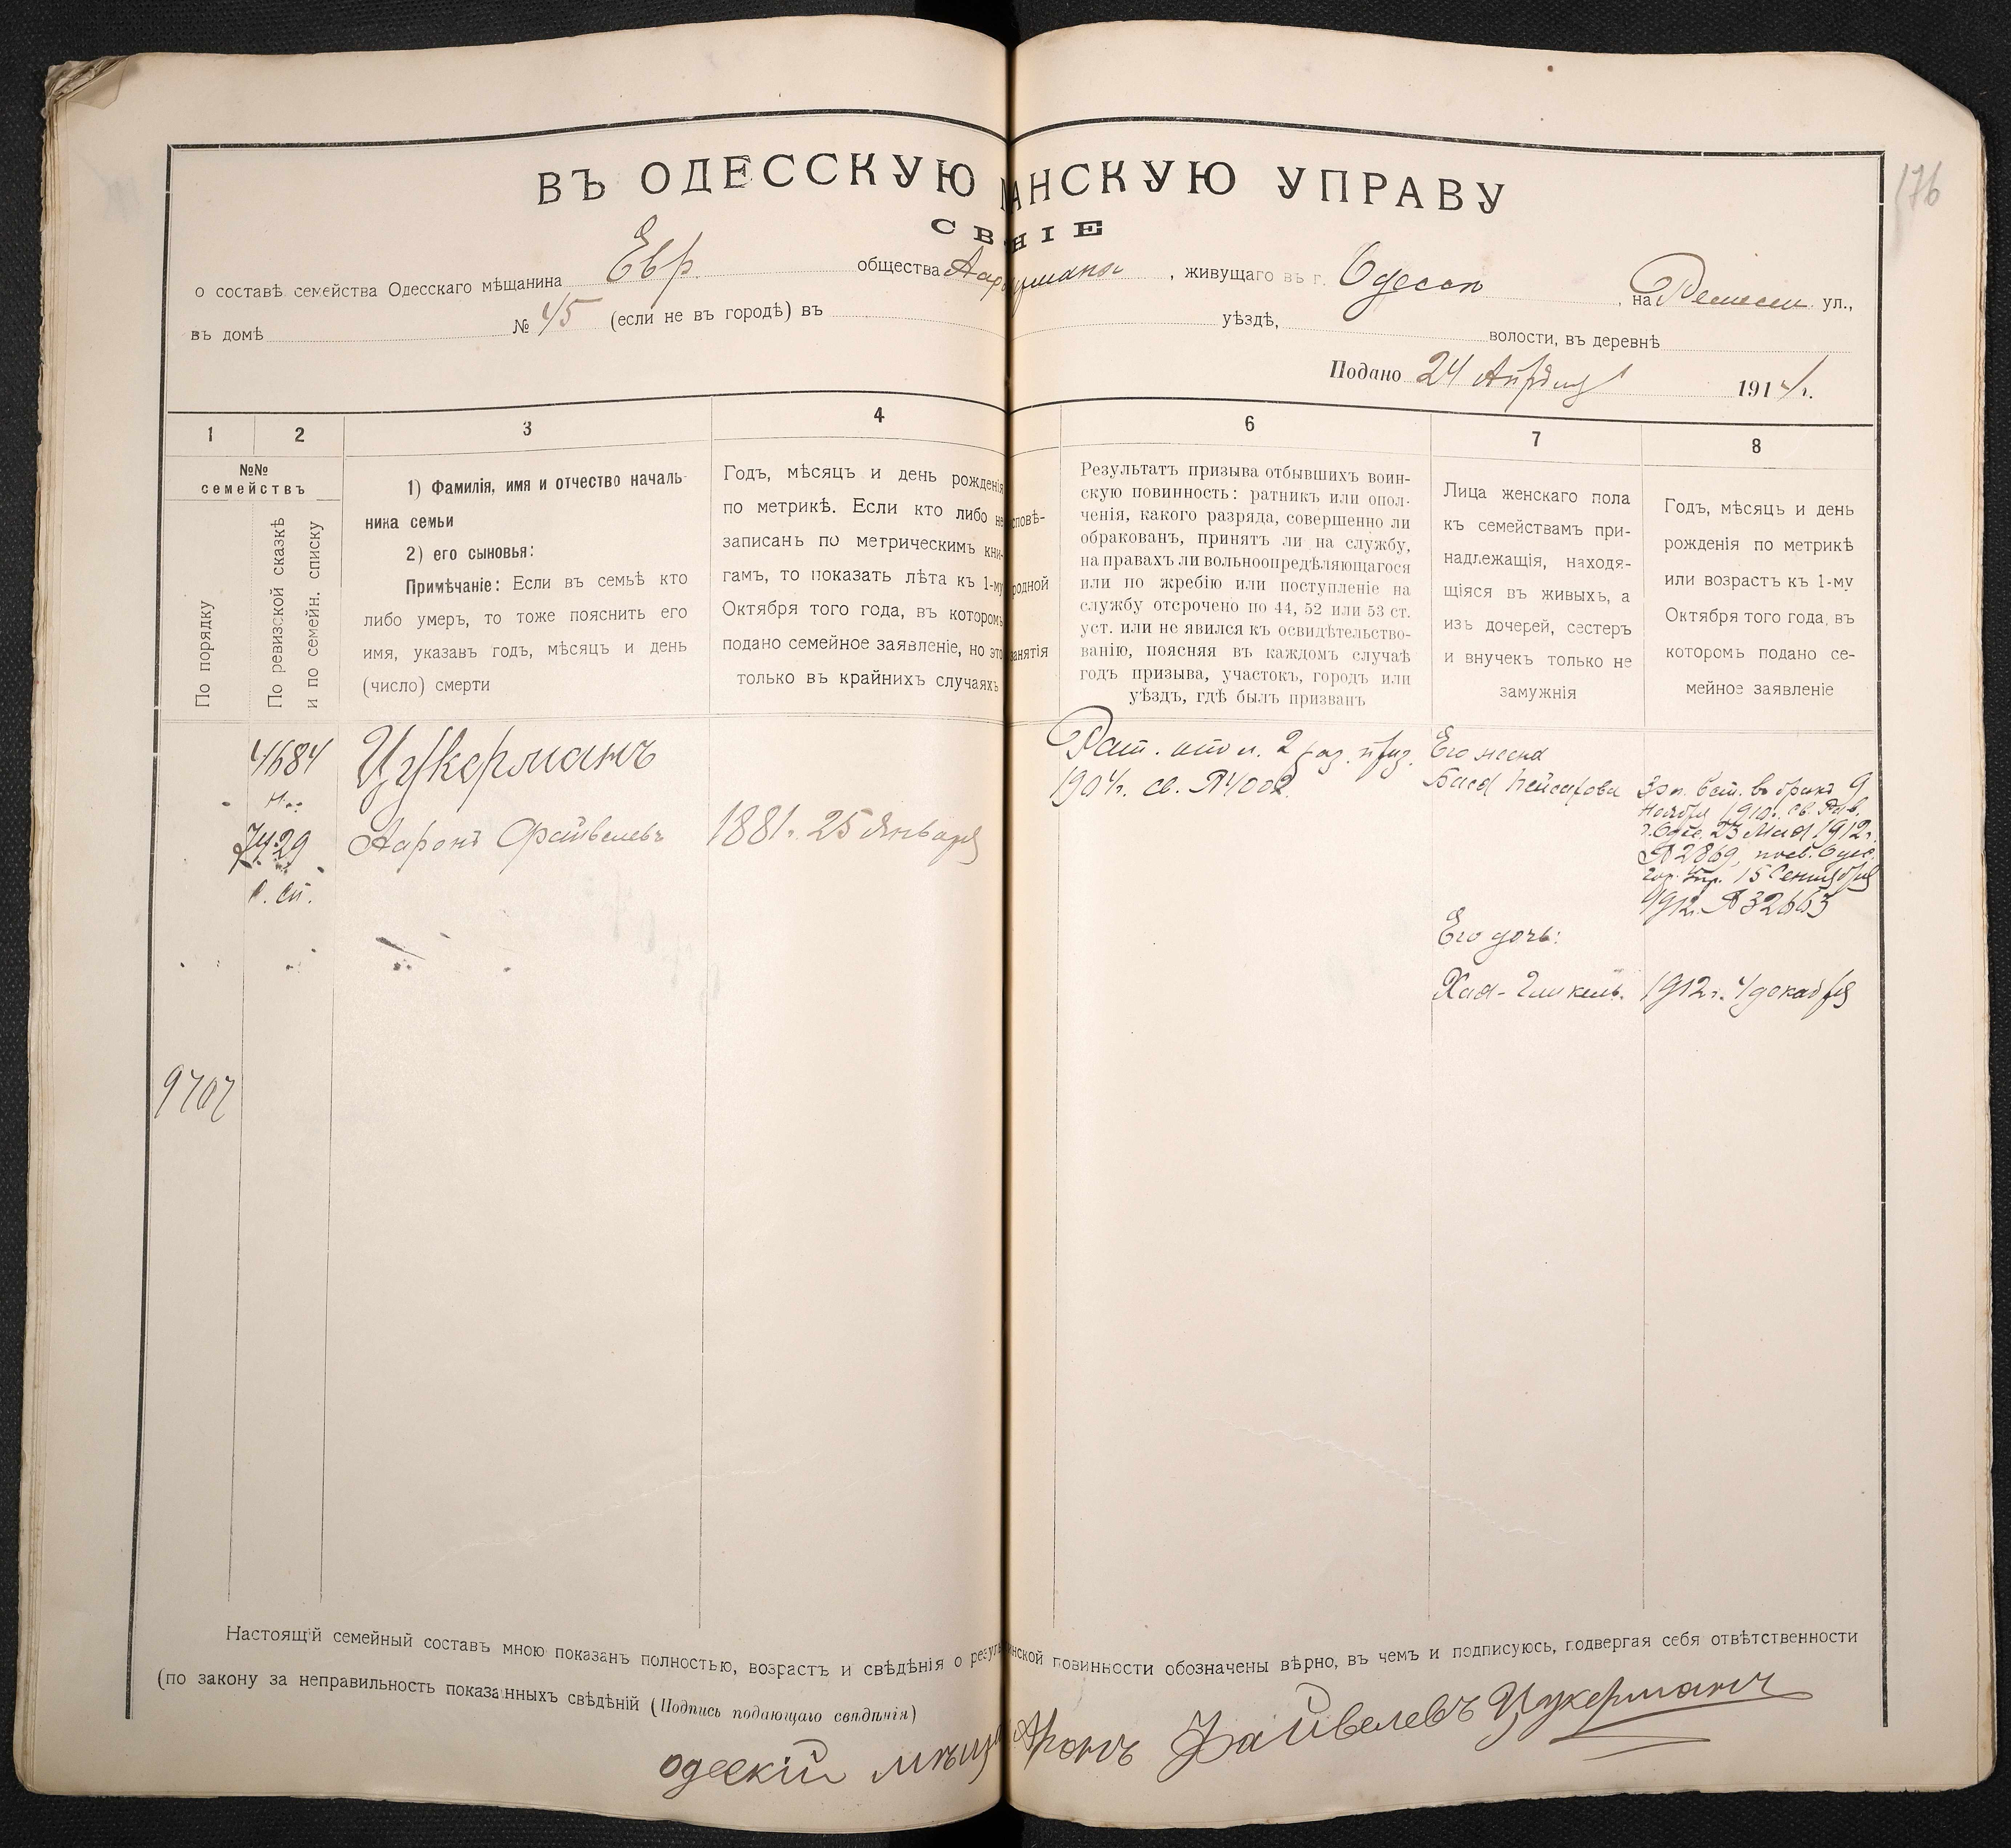 176
ВЪ ОДЕССКУЮ АНСКУЮ УПРАВУ
СВ НІЕ
о составѣ семейства Одесскаго мѣщанина Евр. общества , живущаго въ г. Одессѣ , на ул.,
въ домѣ № 45 (если не въ городѣ) въ уѣздѣ, волости, въ деревнѣ
Подано 24 Апрѣля 1914 г.
1
2
3
4
6
7
8
№№
семействъ
По порядку
По ревизской сказкѣ
и по семейн. списку
1) Фамилія, имя и отчество началь-
ника семьи
2) его сыновья:
Примѣчаніе: Если въ семьѣ кто
либо умеръ, то тоже пояснить его
имя, указавъ годъ, мѣсяцъ и день
(число) смерти
Годъ, мѣсяцъ и день рожденія
по метрикѣ. Если кто либо не
записанъ по метрическимъ кни-
гамъ, то показать лѣта къ 1-му
Октября того года, въ которомъ
подано семейное заявленіе, но это
только въ крайнихъ случаяхъ
сповѣ-
родной
занятія
Результатъ призыва отбывшихъ воин-
скую повинность: ратникъ или опол-
ченія, какого разряда, совершенно ли
обракованъ, принятъ ли на службу,
на правахъ ли вольноопредѣляющагося
или по жребію или поступленіе на
службу отсрочено по 44, 52 или 53 ст.
уст. или не явился къ освидѣтельство-
ванію, поясняя въ каждомъ случаѣ
годъ призыва, участокъ, городъ или
уѣздъ, гдѣ былъ призванъ
Лица женскаго пола
къ семействамъ при-
надлежащія, находя-
щіяся въ живыхъ, а
изъ дочерей, сестеръ
и внучекъ только не
замужнія
Годъ, мѣсяцъ и день
рожденія по метрикѣ
или возрастъ къ 1-му
Октября того года, въ
которомъ подано се-
мейное заявленіе
4684
7429
с. сп.
9707
Цукерманъ
Ааронъ Файвелевъ
1881 г. 25 Января
Рат. опол. 2 раз. приз.
1904 г. св. № 4002
Его жена
Бася Пейсахова
вст. въ бракъ 9
Ноября 1910 г. св.
г. Одес. 23 Мая 1912 г.
№ 2869, Одес.
15 Сентября
1912 г. № 32663
Его дочь:
Хая-Гликель. 1912 г. 4 декабря
Настоящій семейный составъ мною показанъ полностью, возрастъ и свѣдѣнія о резуль инской повинности обозначены вѣрно, въ чемъ и подписуюсь, подвергая себя отвѣтственности
(по закону за неправильность показанныхъ свѣдѣній (Подпись подающаго свѣдѣнія)
одескій мѣща Аронъ Файвелевъ Цукерманъ